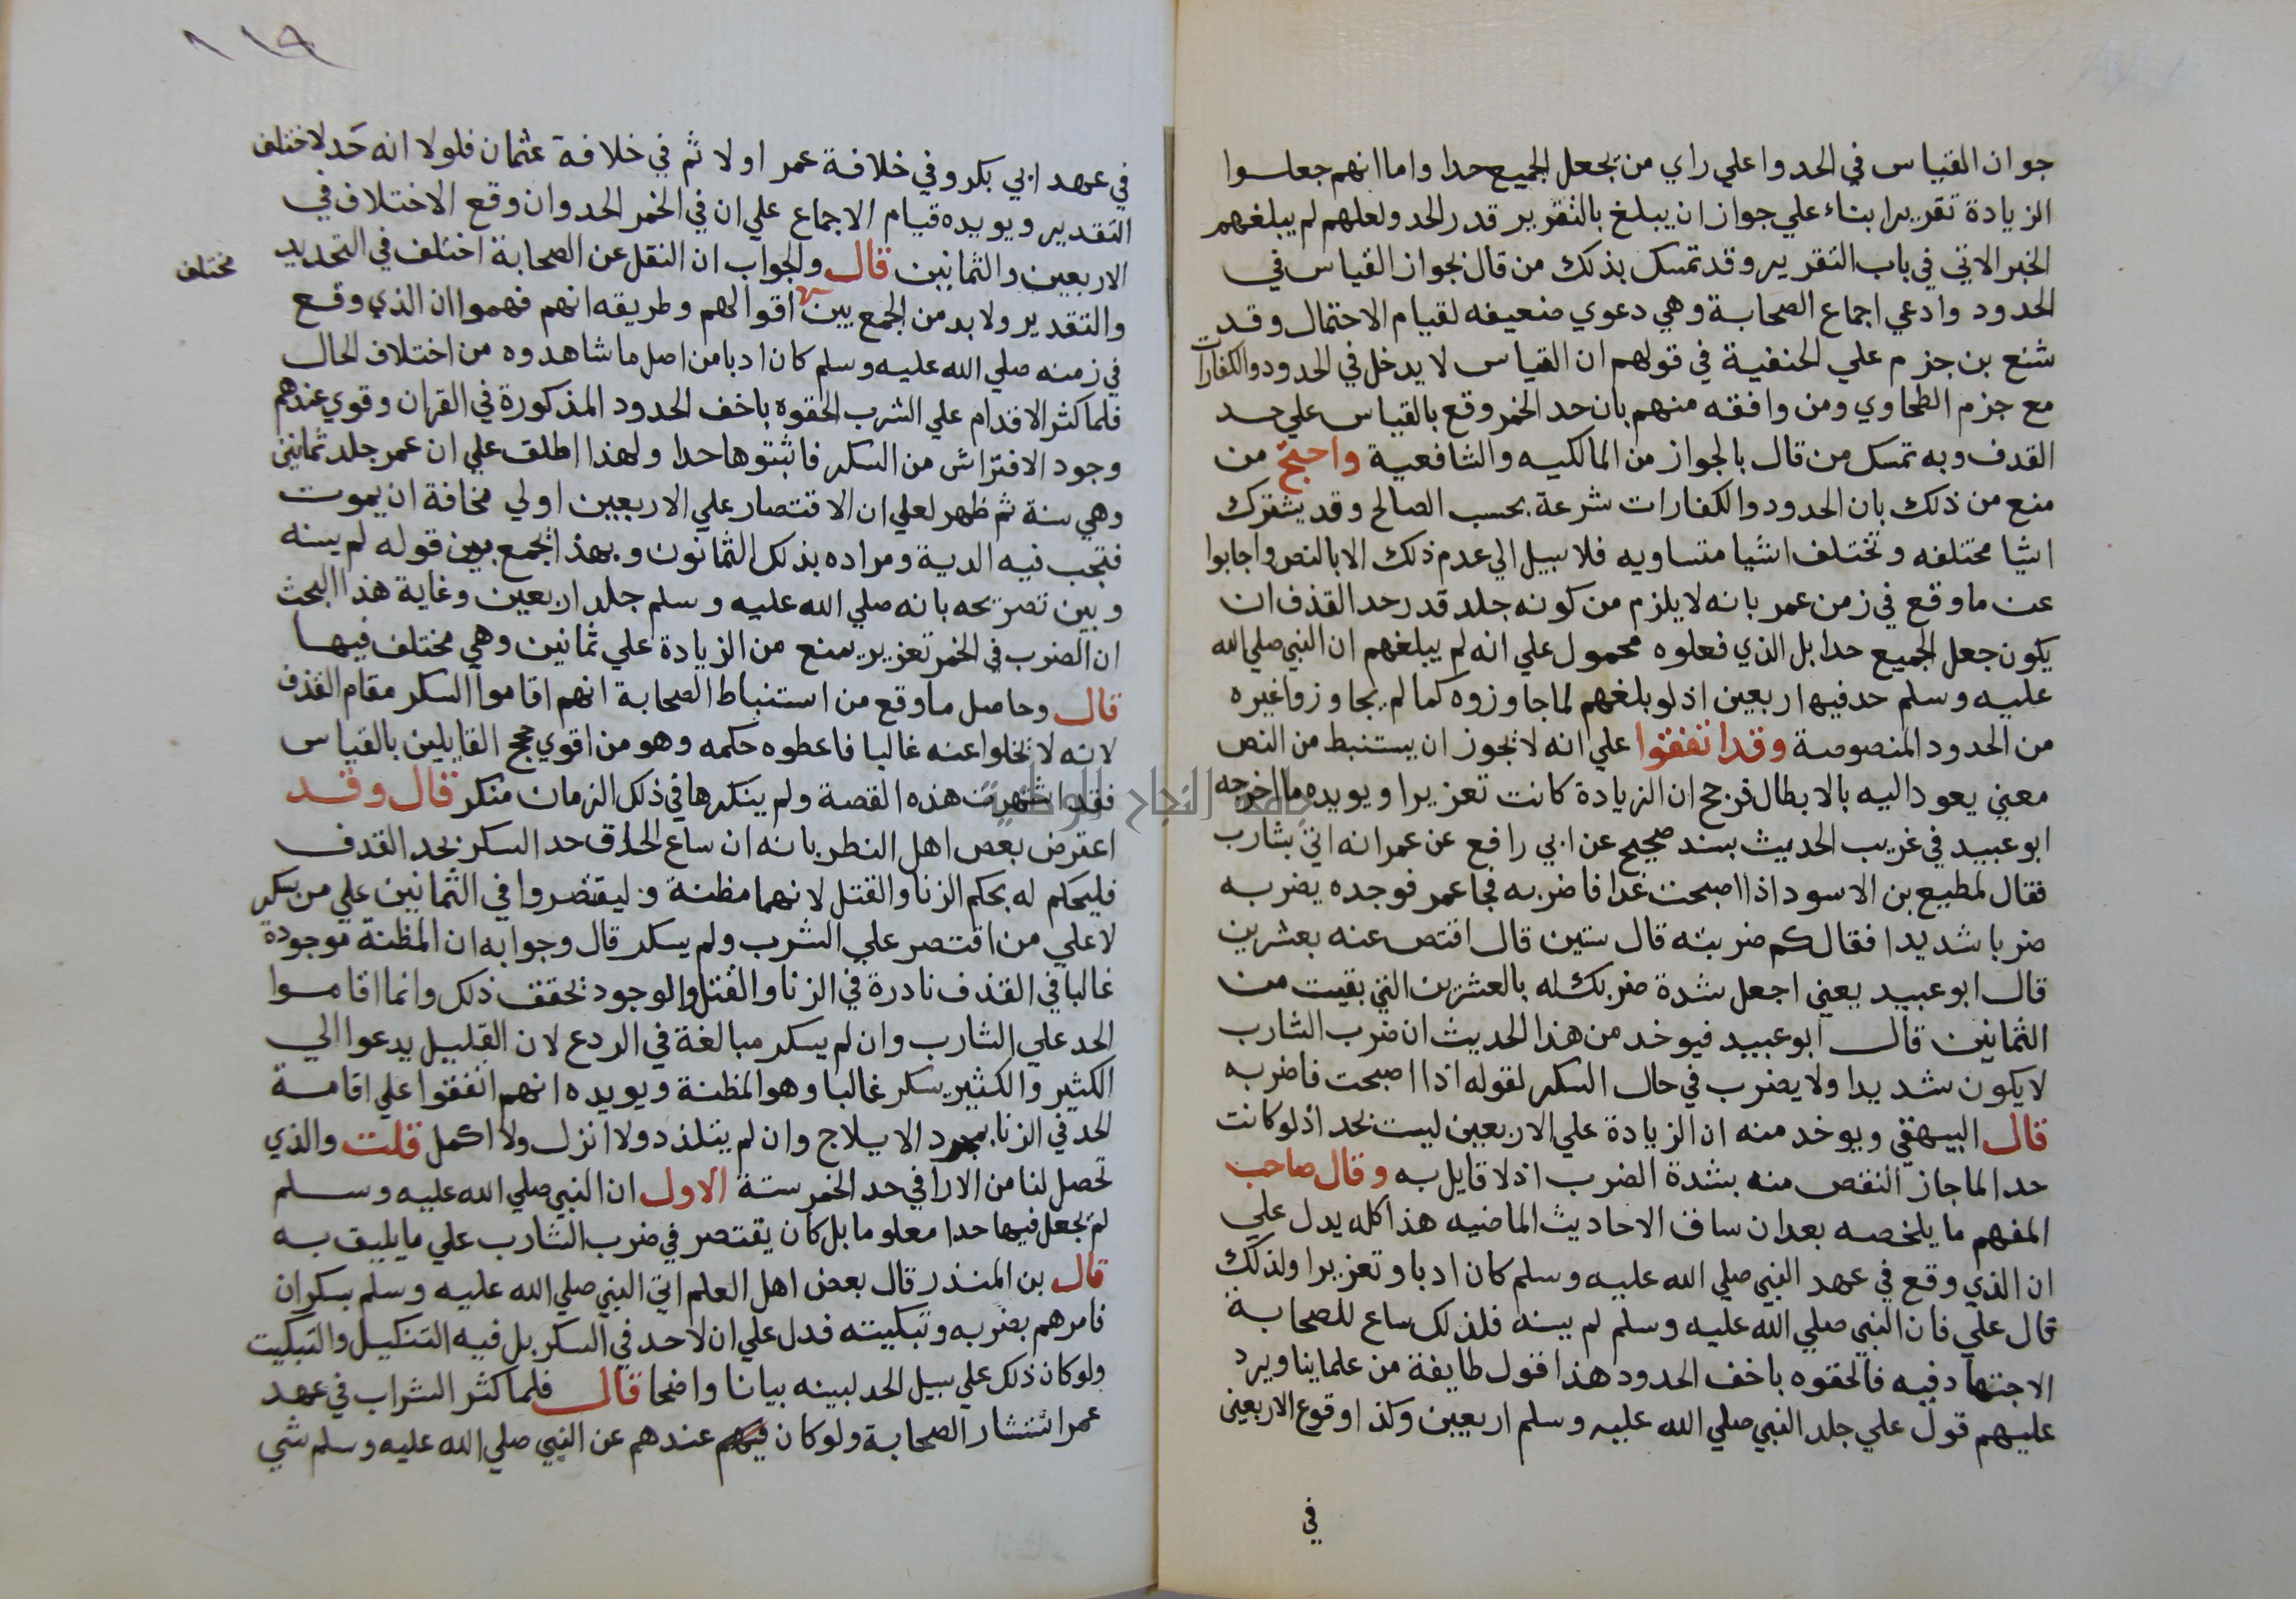 جوان القياس في الحدوا علي راي من يجعل الجميع حدا واما انهم جعلوا
الزيادة تقريرا بناء علي جواز ان يبلغ بالتقرير قدر الحد ولعلهم لم يبلغهم
الخبر الاتي في باب التقرير وقد تمسك بذلك من قال بجواز القياس في
الحدود وادعي اجماع الصحابة وهي دعوي ضعيفه لقيام الاحتمال وقد
شنع بن جزم علي الحنفية في قولهم ان القياس لا يدخل في الحدود والكفارات
مع جزم الطحاوي ومن وافقه منهم بان حد الخمر وقع بالقياس علي حد
القدف وبه تمسك من قال بالجواز من المالكيه والشافعية واحتج من
منع من ذلك بان الحدود والكفارات شرعة بحسب الصالح وقد يشترك
اشيا مختلفه وتختلف اشيا متساويه فلا سبيل الي عدم ذلك الا بالنص واجابوا
عن ما وقع في زمن عمر بانه لا يلزم من كونه جلد قدر حد القذف ان
يكون جعل الجميع حدا بل الذي فعلوه محمول علي انه لم يبلغهم ان النبي صلي الله
عليه وسلم حد فيها اربعين اذ لو بلغهم لما جاوزوه كما لم يجاوزوا غيره
من الحدود المنصوصة وقد اتفقوا علي انه لا يجوز ان يستنبط من النص
معني يعود اليه بالابطال فرجح ان الزيادة كانت تعزيرا ويويده ما اخرجه
ابو عبيد في غريب الحديث بسند صحيح عن ابي رافع عن عمر انه اتي بشارب
فقال لمطيع بن الاسود اذا اصبحت غدا فاضربه فجا عمر فوجده يضربه
ضربا شديدا فقال كم ضربته قال ستين قال اقتص عنه بعشرين
قال ابو عبيد يعني اجعل شدة ضربك له بالعشرين التي بقيت من
الثمانين قال ابو عبيد فيوخد من هذا الحديث ان ضرب الشارب
لا يكون شديدا ولا يضرب في حال السكر لقوله اذا اصبحت فاضربه
قال البيهقي ويوخد منه ان الزيادة علي الاربعين ليست بحد اذ لو كانت
حدا لما جاز النقص منه بشدة الضرب اذ لا قايل به وقال صاحب
المفهم ما يلخصه بعد ان ساق الاحاديث الماضيه هذا كله يدل علي
ان الذي وقع في عهد النبي صلي الله عليه وسلم كان ادبا وتعزيرا ولذلك
قال علي فان النبي صلي الله عليه وسلم لم يسنه فلذلك ساع للصحابة
الاجتهاد فيه فالحقوه باخف الحدود هذا قول طايفة من علماينا ويرد
عليهم قول علي جلد النبي صلي الله عليه وسلم اربعين وكذا وقوع الاربعين
في
في عهد ابي بكر وفي خلافة عمر اولا ثم في خلافة عثمان فلولا انه حد لاختلف
التقدير ويويده قيام الاجماع علي ان في الخمر الحد وان وقع الاختلاف في
الاربعين والثمانين قال والجواب ان النقل عن الصحابة اختلف في التحديد
مختلف
والتقدير ولا بد من الجمع بين اقوالهم وطريقه انهم فهموا ان الذي وقع
في زمنه صلي الله عليه وسلم كان ادبا من اصل ما شاهدوه من اختلاف الحال
فلما كثر الاقدام علي الشرب الحقوه باخف الحدود المذكورة في القران وقوي عندهم
وجود الافتراش من السكر فاثبتوها حدا ولهذا اطلق علي ان عمر جلد ثمانين
وهي سنة ثم ظهر لعلي ان الاقتصار علي الاربعين اولي مخافة ان يموت
فتجب فيه الدية ومراده بذلك الثمانون وبهذا الجمع بين قوله لم يسنه
وبين تصريحه بانه صلي الله عليه وسلم جلد اربعين وغاية هذا البحث
ان الضرب في الخمر تعزير يمنع من الزيادة علي ثمانين وهي مختلف فيها
قال وحاصل ما وقع من استنباط الصحابة انهم اقاموا السكر مقام القذف
لانه لا تخلوا عنه غالبا فاعطوه حكمه وهو من اقوي حجج القايلين بالقياس
فقد اشتهرت هذه القصة ولم ينكرها في ذلك الزمان منكر قال وقد
اعترض بعض اهل النطر بانه ان ساع الحاق حد السكر بحد القدف
فليحكم له بحكم الزنا والقتل لانهما مظنة وليقتصروا في الثمانين علي من سكر
لا علي من اقتصر علي الشرب ولم يسكر قال وجوابه ان المظنة موجودة
غالبا في القذف نادرة في الزنا والقتل والوجود يحقق ذلك وانما اقاموا
الحد علي الشارب وان لم يسكر مبالغة في الردع لان القليل يدعوا الي
الكثير والكثير يسكر غالبا وهو المظنة ويويده انهم اتفقوا علي اقامة
الحد في الزنا بمجرد الايلاج وان لم يتلذد ولا انزل ولا اكمل قلت والذي
تحصل لنا من الارا في حد الخمر ستة الاول ان النبي صلي الله عليه وسلم
لم يجعل فيها حدا معلوما بل كان يقتصر في ضرب الشارب علي ما يليق به
قال بن المنذر قال بعض اهل العلم اتي النبي صلي الله عليه وسلم بسكران
فامرهم بضربه وتبكيته فدل علي ان لا حد في السكر بل فيه التنكيل والتبكيت
ولو كان ذلك علي سبيل الحد لبينه بيانا واضحا قال فلما كثر الشراب في عهد
عمر استشار الصحابة ولو كان عندهم عن النبي صلي الله عليه وسلم شي
جامعة النجاح الوطنية